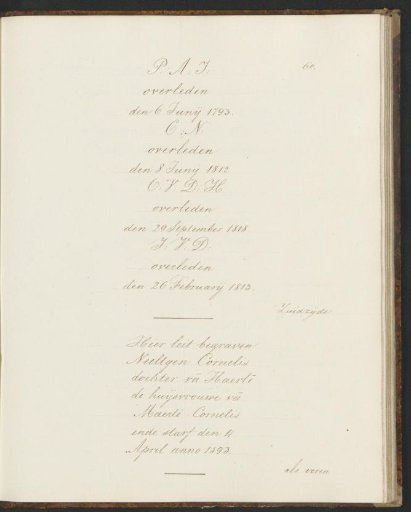 60.
P. A. J.
overleden
den 6 Junij 1793.
C. N.
overleden
den 8 Juny 1812
C. V. D. H
overleden
den 29 September 1808
J. V. D.
overleden
den 26 February 1813.
Zuidzyde
Hier leit begraven
Nieltgen Cornelis
dochter vā Haerlē
de huijsvrouwe vā
Maerlē Cornelis
ende starf den 4
April anno 1592.
als voren